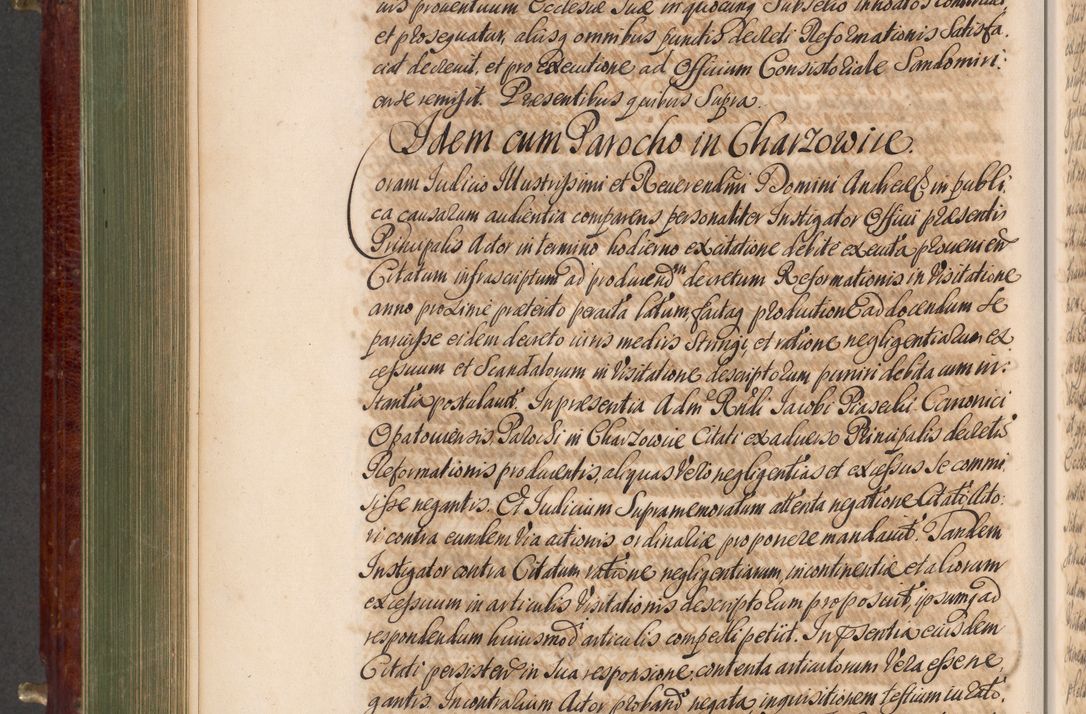 et prosequatur, aliisq omnibus punctis decreti Reformationis satisfa,
ciat decrevit, et pro executione ad Officium Consistoriale Sandomiri:
ense remisit. Praesentibus quibus supra.
Idem cum Parocho in Charzowice.
Coram Judicio Illustrissimi et Reverendmi Domini Andreae &c in publi,
ca causarum audientia comparens personaliter Instigator Officii praesentis
Principalis Actor in termino hodierno ex citatione debite executa provenien
Citatum infrascriptum ad producend decretum Reformationis in Visitatione
anno proxime praeterito peracta latum, factaq productione ad docendum se
paruisse eidem decreto juris mediis stringi, et ratione negligentiarum ex,
cessuum et scandalorum in Visitatione descriptorum puniri debita cum in:
stantia postulavit. In praesentia Adm Rndi Jacobi Piasecki Canonici
Opatoviensis, Parochi in Charzowice Citati ex adverso Principalis decretu
Reformationis producentis, aliquas vero negligentias et excessus se commi,
sisse negantis. Et Judicium supramemoratum attenta negatione Citati Acto:
ri contra eundem via actionis ordinariae proponere mandavit. Tandem
Instigator contra Citatum ratione negligentiarum, incontinentiae et aliorum
excessuum in articulis Visitationis descriptorum proposuit, ipsumq ad
respondendum huiusmod articulis compelli petiit. In psentia eiusdem
Citati persisten in sua responsione, contenta articulorum vera esse ne,
gantis. In contrarium Actor proband negata inquisitionem testium iurato,